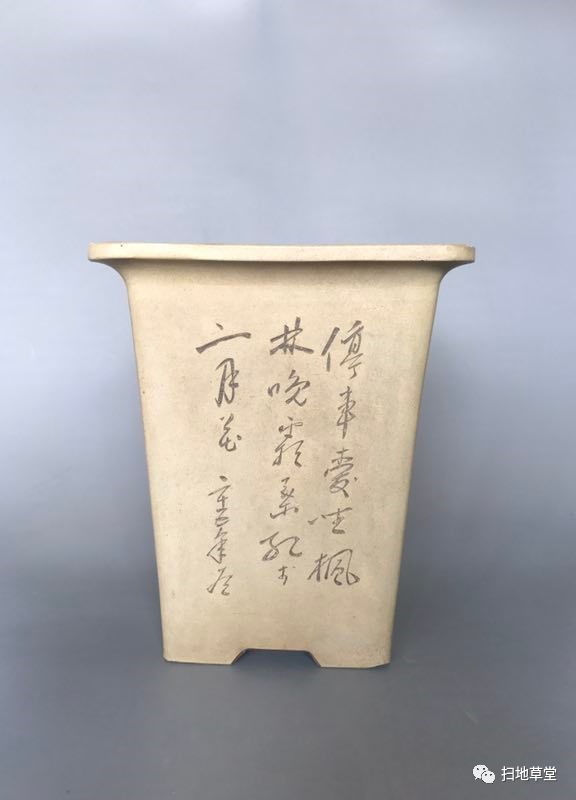 停車愛坐楓
林晚霜葉红于
二月花 辛酉年
扫地草堂